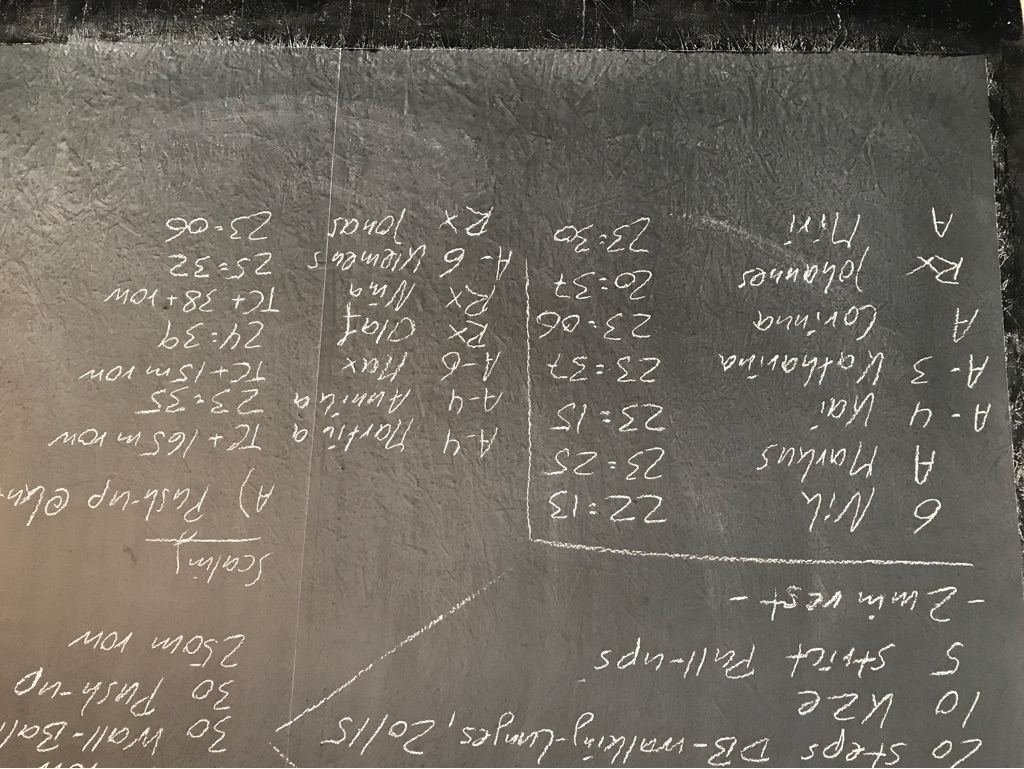 20 steps DB-walking-Lunges, 20/15
10 K2E
5 strict Pull-ups
- 2 min rest -
6 Nik 22:13
A Markus 23:25
A-4 Kai 23:15
A-3 Katharina 23:37
A Corinna 23:06
Rx Johannes 20:37
A Miri 23:30
row
30 Wall-Ball
30 Push-up
250m row
Scaling
A) Push-up
A-4 Martina TC + 165m row
A-4 Annika 23:35
A-6 Max TC + 15m row
Rx Olaf 24:39
Rx Nina TC + 38 + row
A-6 Klemens 25:32
Rx Jonas 23:06